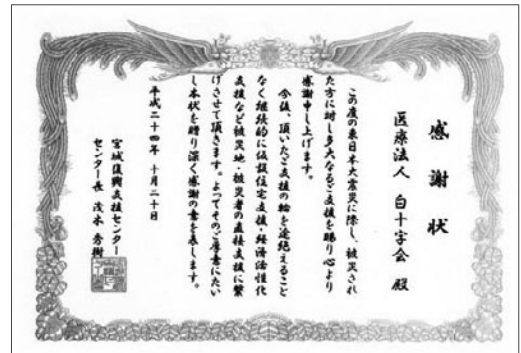 感謝状
医療法人 白十字会 殿
この度の東日本大震災に際し、被災され
た方に対し多大なるご支援を賜り心より
感謝申し上げます。
今後、頂いたご支援の輪を途絶えること
なく継続的に仮設住宅支援・経済活性化
支援など被災地・被災者の直接支援に繋
げさせて頂きます。よってそのご厚意にたい
し本状を贈り深く感謝の意を表します。
平成二十四年 十月二十日
宮城復興支援センター
センター長 茂木 秀樹